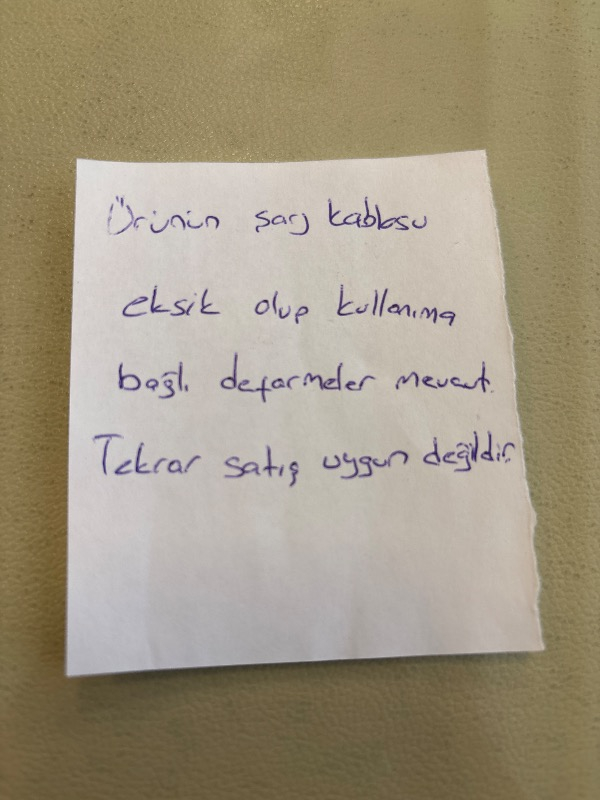 Ürünün şarj kablosu
eksik olup kullanıma
bağlı defarmeler mevcut.
Tekrar satış uygun değildir.